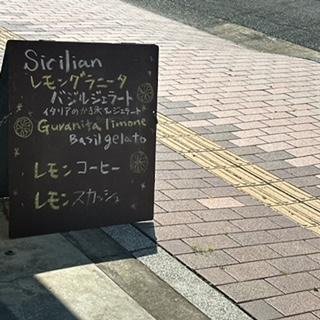 Sicilian
レモングラニータ
バジルジェラート
イタリアのかき氷&ジェラート
Guranita limone
Basil gelato
レモンコーヒー
レモンスカッシュ